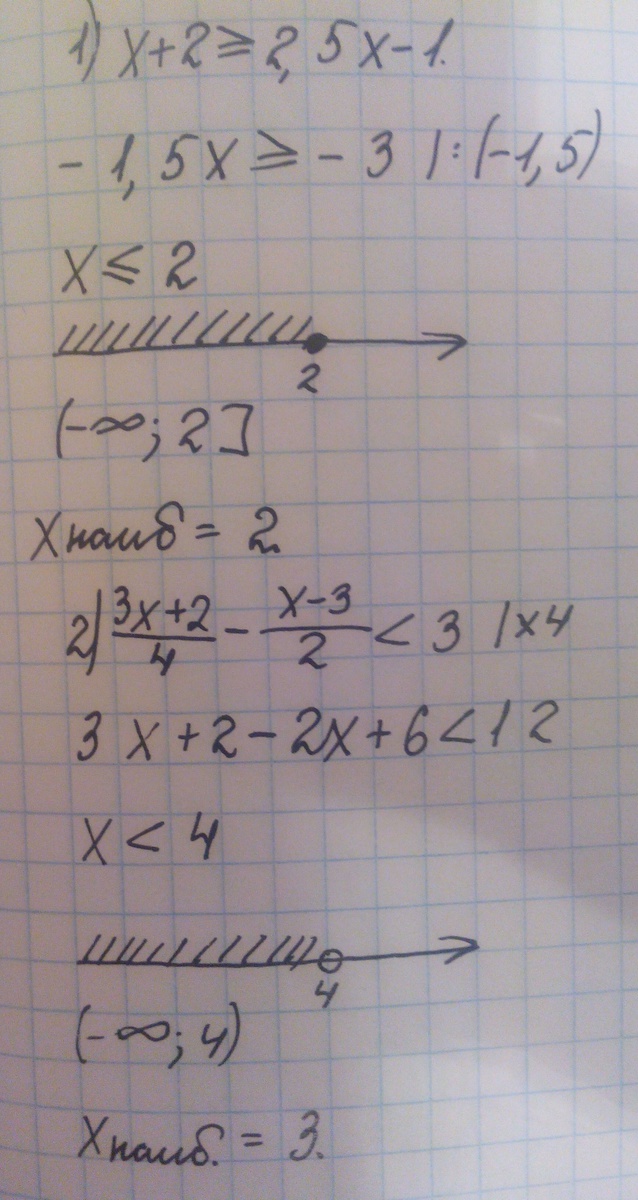 1) x+2⩾2,5x-1.
-1,5x⩾-3 |:(-1,5)
x⩽2
2
(-∞; 2]
xнаиб = 2.
2) (3x+2)/4 - (x-3)/2 < 3 |×4
3x+2-2x+6<12
x < 4
4
(-∞; 4)
xнаиб. = 3.